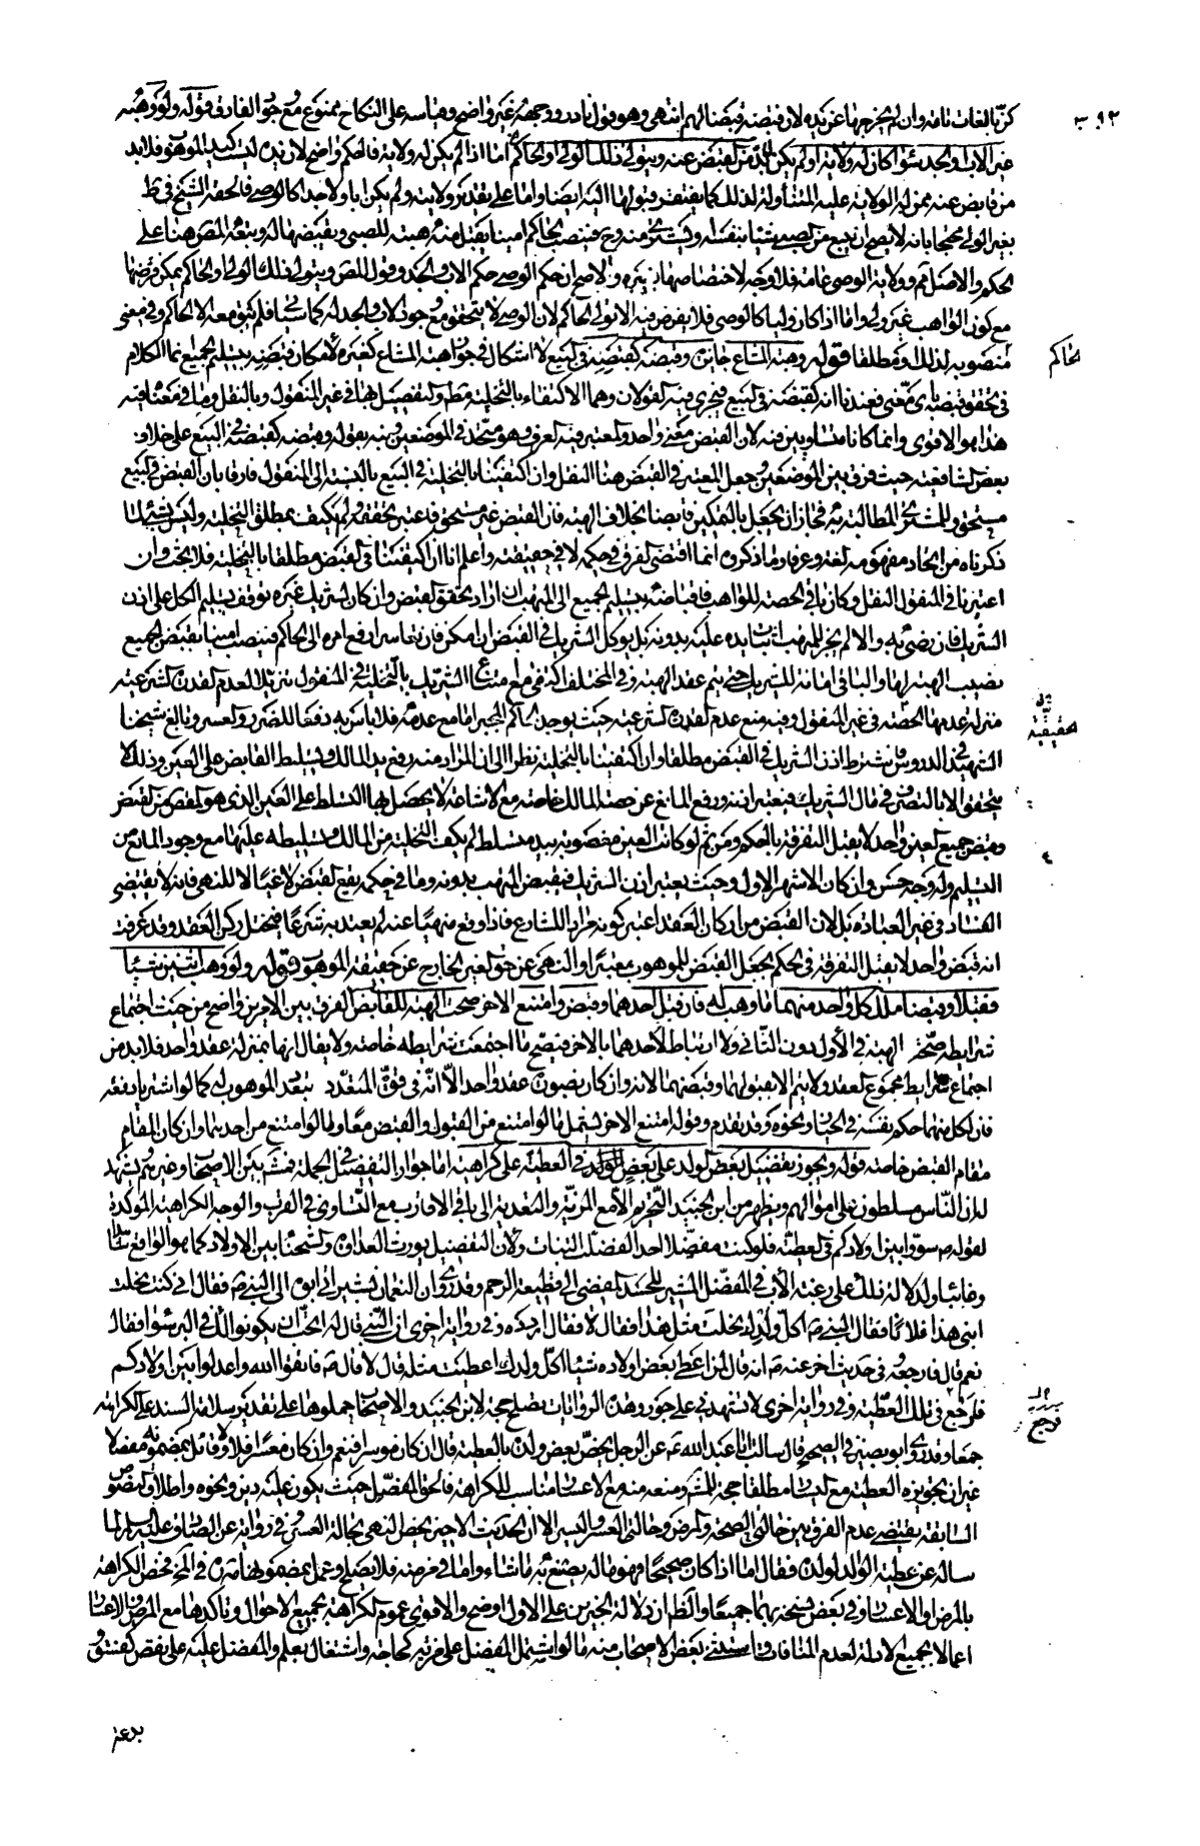 كن بالغات تامة وان لم يخرجها عن يده لان قبضه قبضنا لهم انتهى وهو قول نادر ووجهه غير واضح وقياسه على النكاح ممنوع مع وجود الفارق قوله ولو وهبه
غير الاب او الجد سواء كان له ولاية او لم يكن لابد من القبض عنه ويتولى ذلك الولي او الحاكم اما اذا لم يكن له ولاية فالحكم واضح لان يده ليست كيد الموهوب فلا بد
من قابض عنه ممن له الولاية عليه المتناولة لذلك كما يفتقر قبولها اليه ايضا واما على تقدير ولايته ولم يكن ابا ولا جدا كالوصي فالحقه الشيخ في ط
بغير الولي محتجا بانه لا يصح ان يبيع من الصبي شيئا بنفسه او يشتري منه وح فينصب الحاكم امينا يقبل منه هبته للصبي ويقبضها له وتبعه المص هنا على
الحكم والاصل ثم وولاية الوصي عامة فلا وجه لاختصاصها بغيره والاصح ان حكم الوصي حكم الاب والجد وقول المص ويتولى ذلك الولي او الحاكم يمكن فرضها
مع كون الواهب غير ولي واما اذا كان وليا كالوصي فلا يفرض فيه الا تولي الحاكم لان الوصي لا يتحقق مع وجود الاب والجد له كما سيأتي فلم يبق معه الا الحاكم وفي معنى
الحاكم
منصوبه لذلك ومطلقا قوله وهبة المشاع جائزة وقبضه كقبضه في البيع لا اشكال في جواز هبة المشاع كغيره لامكان قبضه بتسليم الجميع انما الكلام
في تحقق قبضه باي معنى فعندنا انه كقبضه في البيع فيجري فيه القولان وهما الاكتفاء بالتخلية مط والتفصيل بها في غير المنقول وبالنقل وما في معناه فيه
هذا هو الاقوى وانما كانا متساويين فيه لان القبض معنى واحد والمعتبر فيه العرف وهو متحد في الموضعين ونبه بقوله وقبضه كقبضه في البيع على خلاف
بعض الشافعية حيث فرق بين الموضعين وجعل المعتبر في القبض هنا النقل وان اكتفينا بالتخلية في البيع بالنسبة الى المنقول فارقا بان القبض في البيع
مستحق وللمشتري المطالبة به فجاز ان يجعل بالتمكين قابضا بخلاف الهبة فان القبض غير مستحق فاعتبر تحققه ولم يكتف بمطلق التخلية وليس بشيء لما
ذكرناه من اتحاد مفهومه لغة وعرفا وما ذكروه انما اقتضى الفرق في حكمه لا في حقيقته واعلم انا ان اكتفينا في القبض مطلقا بالتخلية فلا بحث وان
اعتبرنا في المنقول النقل وكان باقي الحصة للواهب فاقباضه بتسليم الجميع الى المتهب ان اراد تحقق القبض وان كان لشريك غيره توقف تسليم الكل على اذن
الشريك فان رضي به والا لم يجز للمتهب اثبات يده عليه بدونه بل يوكل الشريك في القبض ان امكن فان تعاسرا رفع امره الى الحاكم فينصب امينا يقبض الجميع
نصيب الهبة لها والباقي امانة للشريك حتى يتم عقد الهبة وفي المختلف اكتفى مع امتناع الشريك بالتخلية في المنقول تنزيلا لعدم القدرة الشرعية
منزلة عدمها الحقيقية
في غير المنقول وفيه منع عدم القدرة الشرعية حيث يوجد الحاكم المجبر اما مع عدمه فلا باس به دفعا للضرر والعسر وبالغ شيخنا
الشهيد في الدروس فاشترط اذن الشريك في القبض مطلقا وان اكتفينا بالتخلية نظرا الى ان المراد منه رفع يد المالك وتسليط القابض على العين وذلك لا
يتحقق الا بالتصرف في مال الشريك فيعتبر اذنه ورفع المانع عن حصة المالك خاصة مع الاشاعة لا يحصل بها التسلط على العين الذي هو المقصود من القبض
وقبض جميع العين واحد لا يقبل التفرقة بالحكم ومن ثم لو كانت العين مغصوبة بيد متسلط لم يكف التخلية من المالك وتسليطه عليها مع وجود المانع من
التسليم وله وجه حسن وان كان الاشهر الاول وحيث يعتبر اذن الشريك فيقبض المتهب بدونه وما في حكمه يقع القبض لاغيا لا للنهي فانه لا يقتضي
الفساد في غير العبادة بل لان القبض من اركان العقد اعتبر كونه مرادا للشارع فاذا وقع منهيا عنه لم يعتد به شرعا فيختل ركن العقد وقد عرفت
انه قبض واحد لا يقبل التفرقة في الحكم بجعل القبض للموهوب معتبرا والنهي عن حق الغير الخارج عن حقيقة الموهوب قوله ولو وهب اثنين شيئا
فقبلا وقبضا ملك كل واحد منهما ما وهب له فان قبل احدهما وقبض وامتنع الاخر صحت الهبة للقابض الفرق بين الامرين واضح من حيث اجتماع
شرايط صحة الهبة في الأول دون الثاني ولا ارتباط لأحدهما بالاخر فيصح ما اجتمعت شرايطه خاصة ولا يقال انها بمنزلة عقد واحد فلا بد من
اجتماع شرايط مجموع العقد ولا يتم الا بقبولهما وقبضهما لانه وان كان بصورة عقد واحد الا انه في قوة المتعدد بتعدد الموهوب له كما لو اشتريا دفعة
فان لكل منهما حكم نفسه في الخيار ونحوه وقد تقدم وقوله امتنع الاخر يشمل ما لو امتنع من القبول والقبض معا وما لو امتنع من احدهما وان كان المقام
مقام القبض خاصة قوله ويجوز تفضيل بعض الولد على بعض في العطية على كراهية اما جواز التفضيل في الجملة فمتفق بين الاصحاب وغيرهم يشهد
له ان الناس مسلطون على اموالهم ويظهر من ابن الجنيد التحريم الا مع المزية والتعدية الى باقي الاقارب مع التساوي في القرب والوجه الكراهية المؤكدة
لقوله ص سووا بين اولادكم في العطية فلو كنت مفضلا احدا لفضلت البنات ولان التفضيل يورث العداوة والشحناء بين الاولاد كما هو الواقع شاهدا
وغائبا ولدلالة ذلك على رغبة الأب في المفضل المثير للحسد المفضي الى قطيعة الرحم وقد روي ان النعمان بن بشير اتى ابوه الى النبي ص فقال اني نحلت
ابني هذا غلاما فقال النبي ص اكل ولدك نحلت مثل هذا فقال لا فقال اردده وفي رواية اخرى ان النبي قال له اتحب ان يكونوا لك في البر سواء فقال
نعم قال فارجعه وفي حديث اخر عنه ص انه قال لمن اعطى بعض اولاده شيئا اكل ولدك اعطيت مثله قال لا قال ص فاتقوا الله واعدلوا بين اولادكم
فرجع في تلك العطية وفي رواية اخرى لا تشهدني على جور وهذه الروايات تصلح حجة لابن الجنيد والاصحاب حملوها على تقدير سلامة السند على الكراهة
جمعا وقد روى ابو بصير في الصحيح قال سالت ابا عبد الله ع عن الرجل يخص بعض ولده بالعطية قال ان كان موسرا فنعم وان كان معسرا فلا ولا قائل بمضمونه مفصلا
غير ان تجويزه العطية مع اليسار مطلقا حجة للمش ومنعه منه مع الاعسار مناسب للكراهة فالحق المفصل حيث يكون عليه دين ونحوه واطلاق النصوص
السابقة يقتضي عدم الفرق بين حالتي الصحة والمرض وحالتي العسر واليسر الا ان الحديث الاخير يخص النهي بحالة العسر وفي رواية عن الصادق عليه السلام لما
ساله عن عطية الوالد لولده فقال اما اذا كان صحيحا فهو ماله يصنع به ما شاء واما في مرضه فلا يصلح وعمل بمضمونها في المخ فخص الكراهة
بالمرض او الاعسار وفي بعض نسخه بهما جميعا والظ ان دلالة الخبرين على الاول اوضح والاقوى عموم الكراهة بجميع الاحوال وتاكدها مع المرض والاعسار
اعمالا لجميع الادلة لعدم المنافاة واستثنى بعض الاصحاب منه ما لو اشتمل المفضل على مزية كحاجة واشتغال بعلم والمفضل عليه على نقص كفسق
بدعة